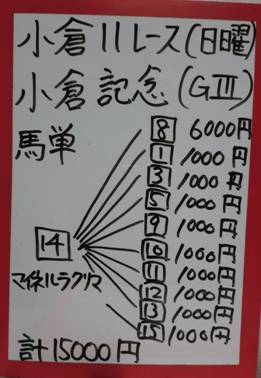 小倉11レース(日曜)
小倉記念(GⅢ)
馬単
8 6000円
1 1000円
3 1000円
5 1000円
9 1000円
14
10 1000円
11 1000円
マイネルラクリマ
12 1000円
13 1000円
15 1000円
計15000円